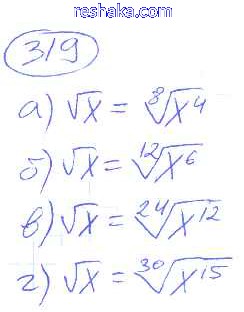 reshaka.com
319
а) √x = ⁸√x⁴
б) √x = ¹²√x⁶
в) √x = ²⁴√x¹²
г) √x = ³⁰√x¹⁵